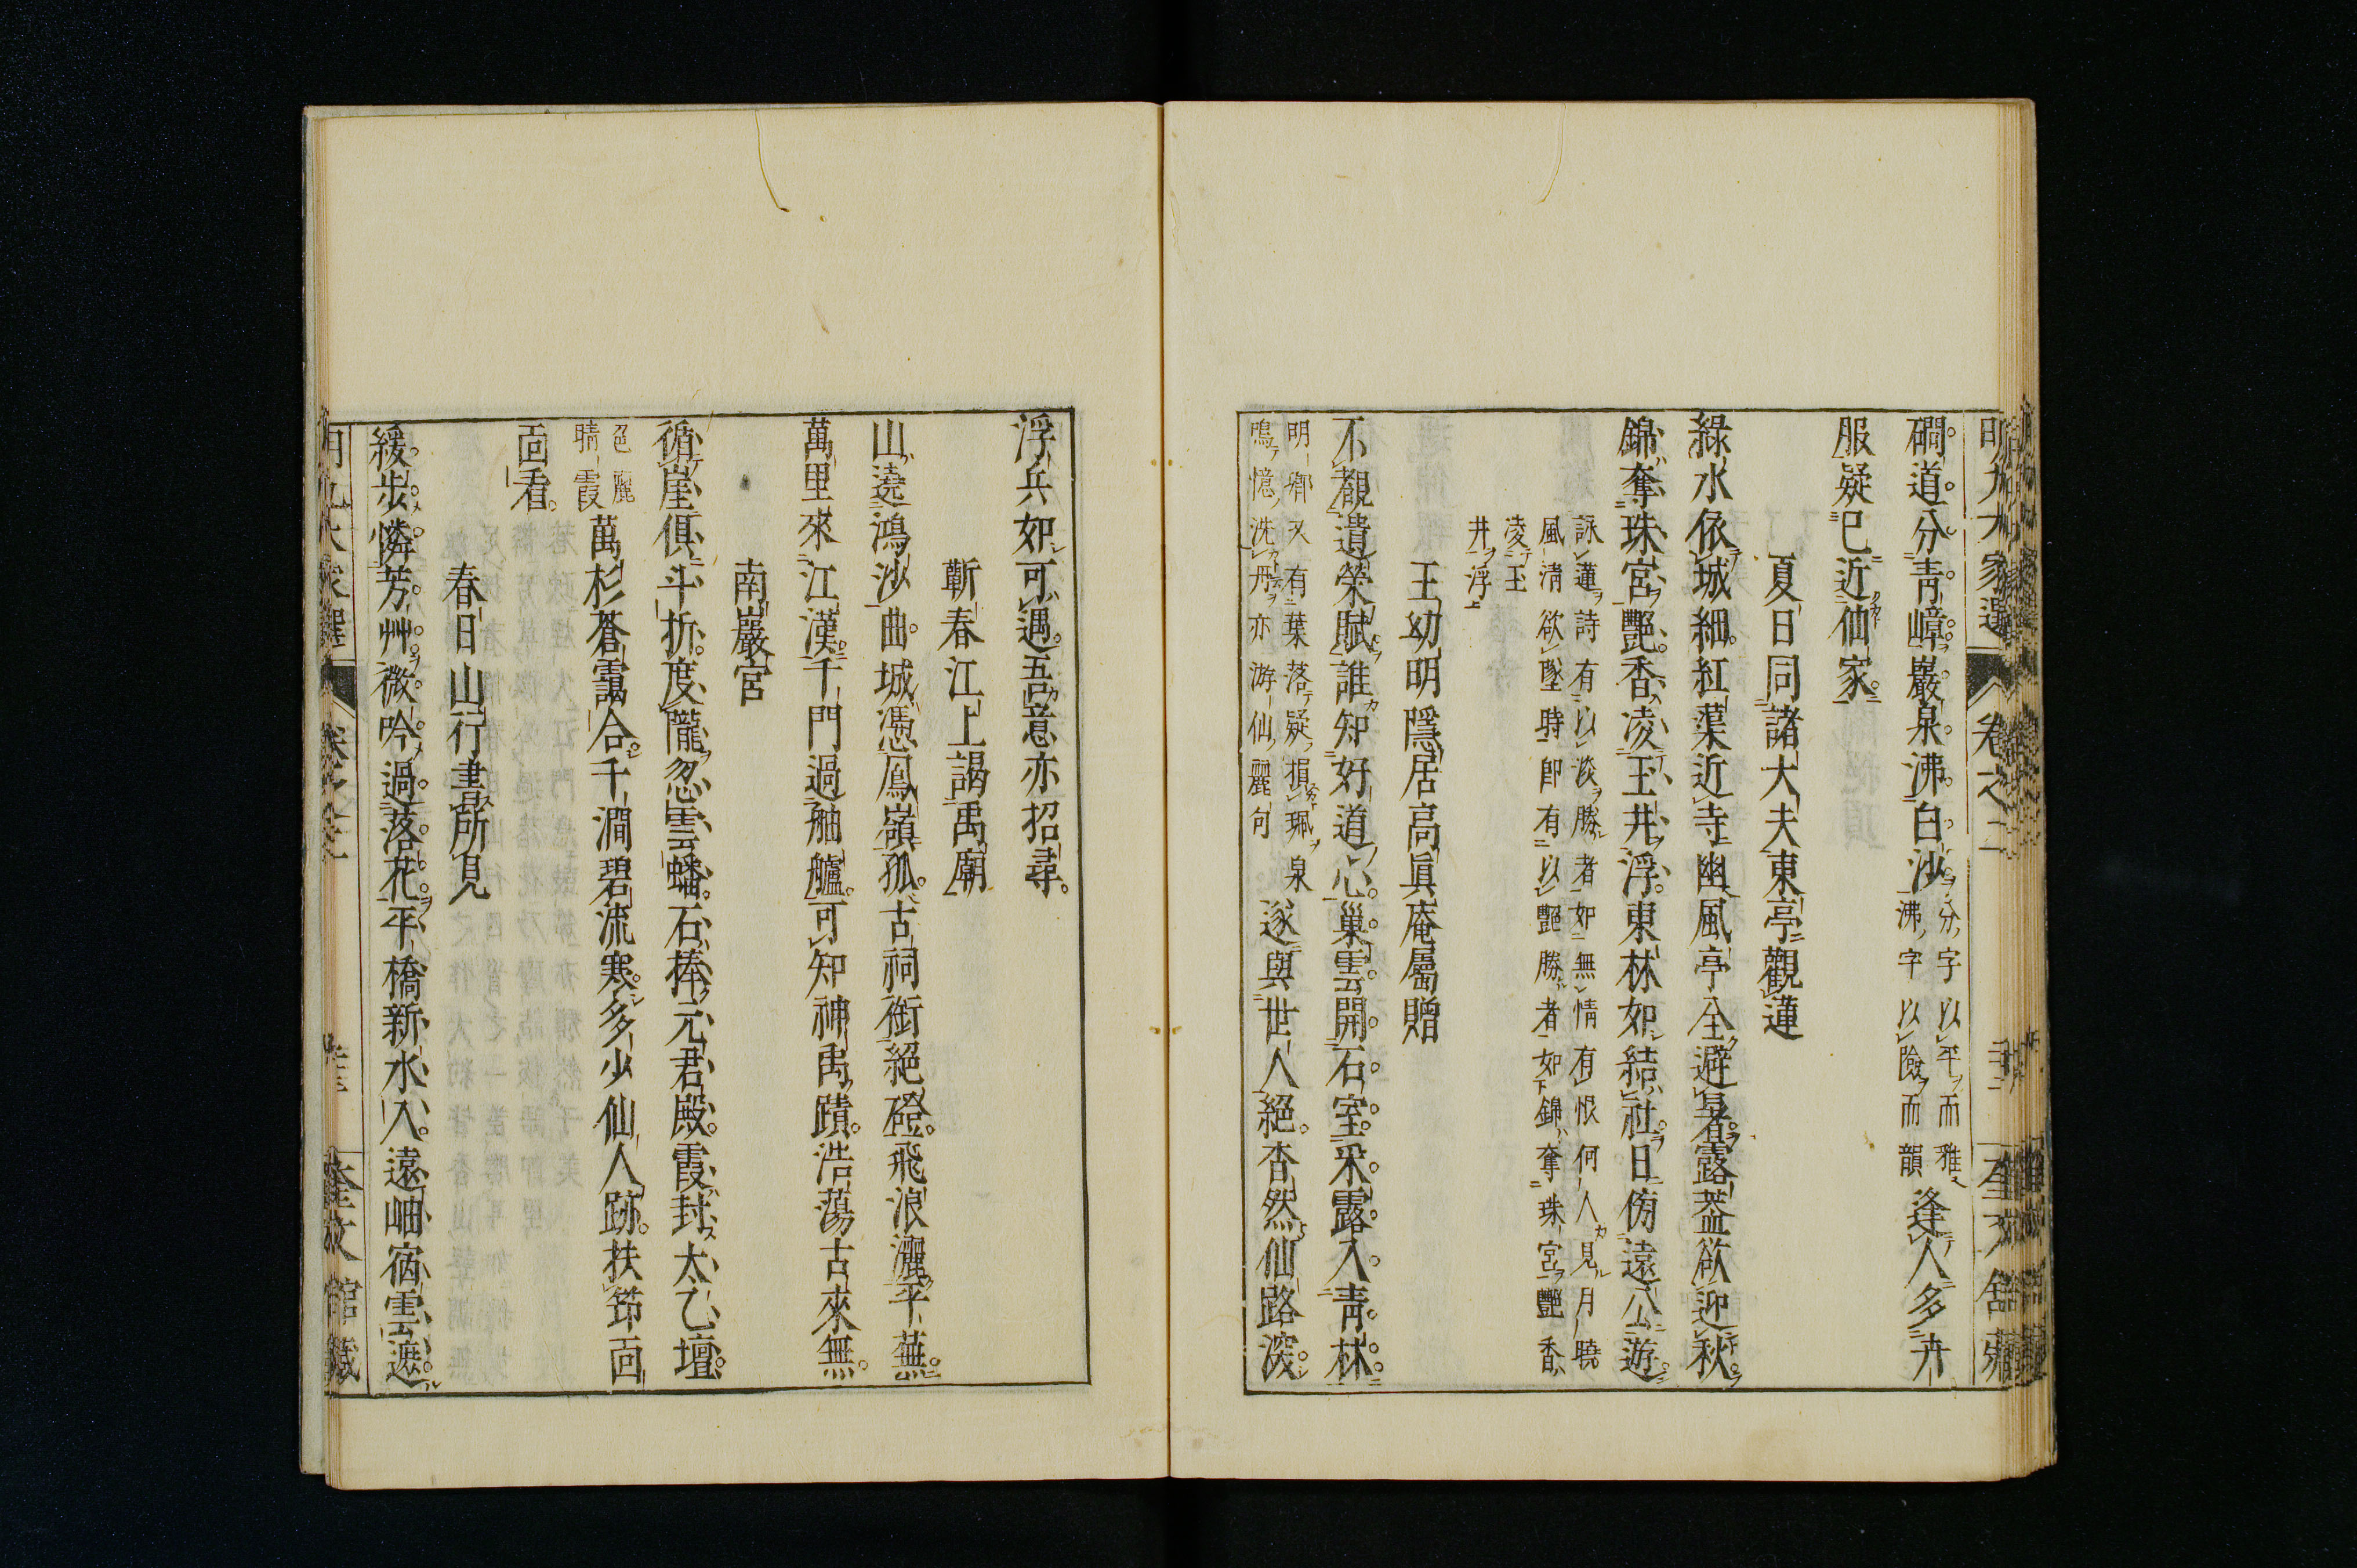 磵道分青嶂巖泉沸白沙分字以平而雅沸字以險而韻逢人多卉
服疑已近仙家
夏日同諸大夫東亭觀蓮
綠水依城細紅蕖近寺幽風亭全避暑露蓋欲迎秋
錦奪珠宮艷香凌玉井浮東林如結社日侑遠公遊
詠蓮詩有以淡勝者如無情有恨何人見月曉
風淸欲墜時即有以艷勝者如錦奪珠宮艷香
凌玉
井浮
王幼明隱居高眞庵屬贈
不覩遺榮賦誰知好道心巢雲開石室釆露入靑林
明卿又有葉落疑損珮泉
鳴憶洗丹亦游仙麗句
遂與世人絕杳然仙路深
浮兵如可遇吾意亦招尋
蘄春江上謁禹廟
山遶鴻沙曲城憑鳳嶺孤古祠銜絕磴飛浪灑平蕪
萬里來江漢千門過舳艫可知神禹蹟浩蕩古來無
南巖宮
循崖俱斗折度隴忽雲蟠石捧元君殿霞封太乙壇
色麗
晴霞
萬杉蒼靄合千澗碧流寒多少仙人跡扶筇面
面看
春日山行書所見
緩步憐芳艸微吟過落花平橋新水入遠岫宿雲遮